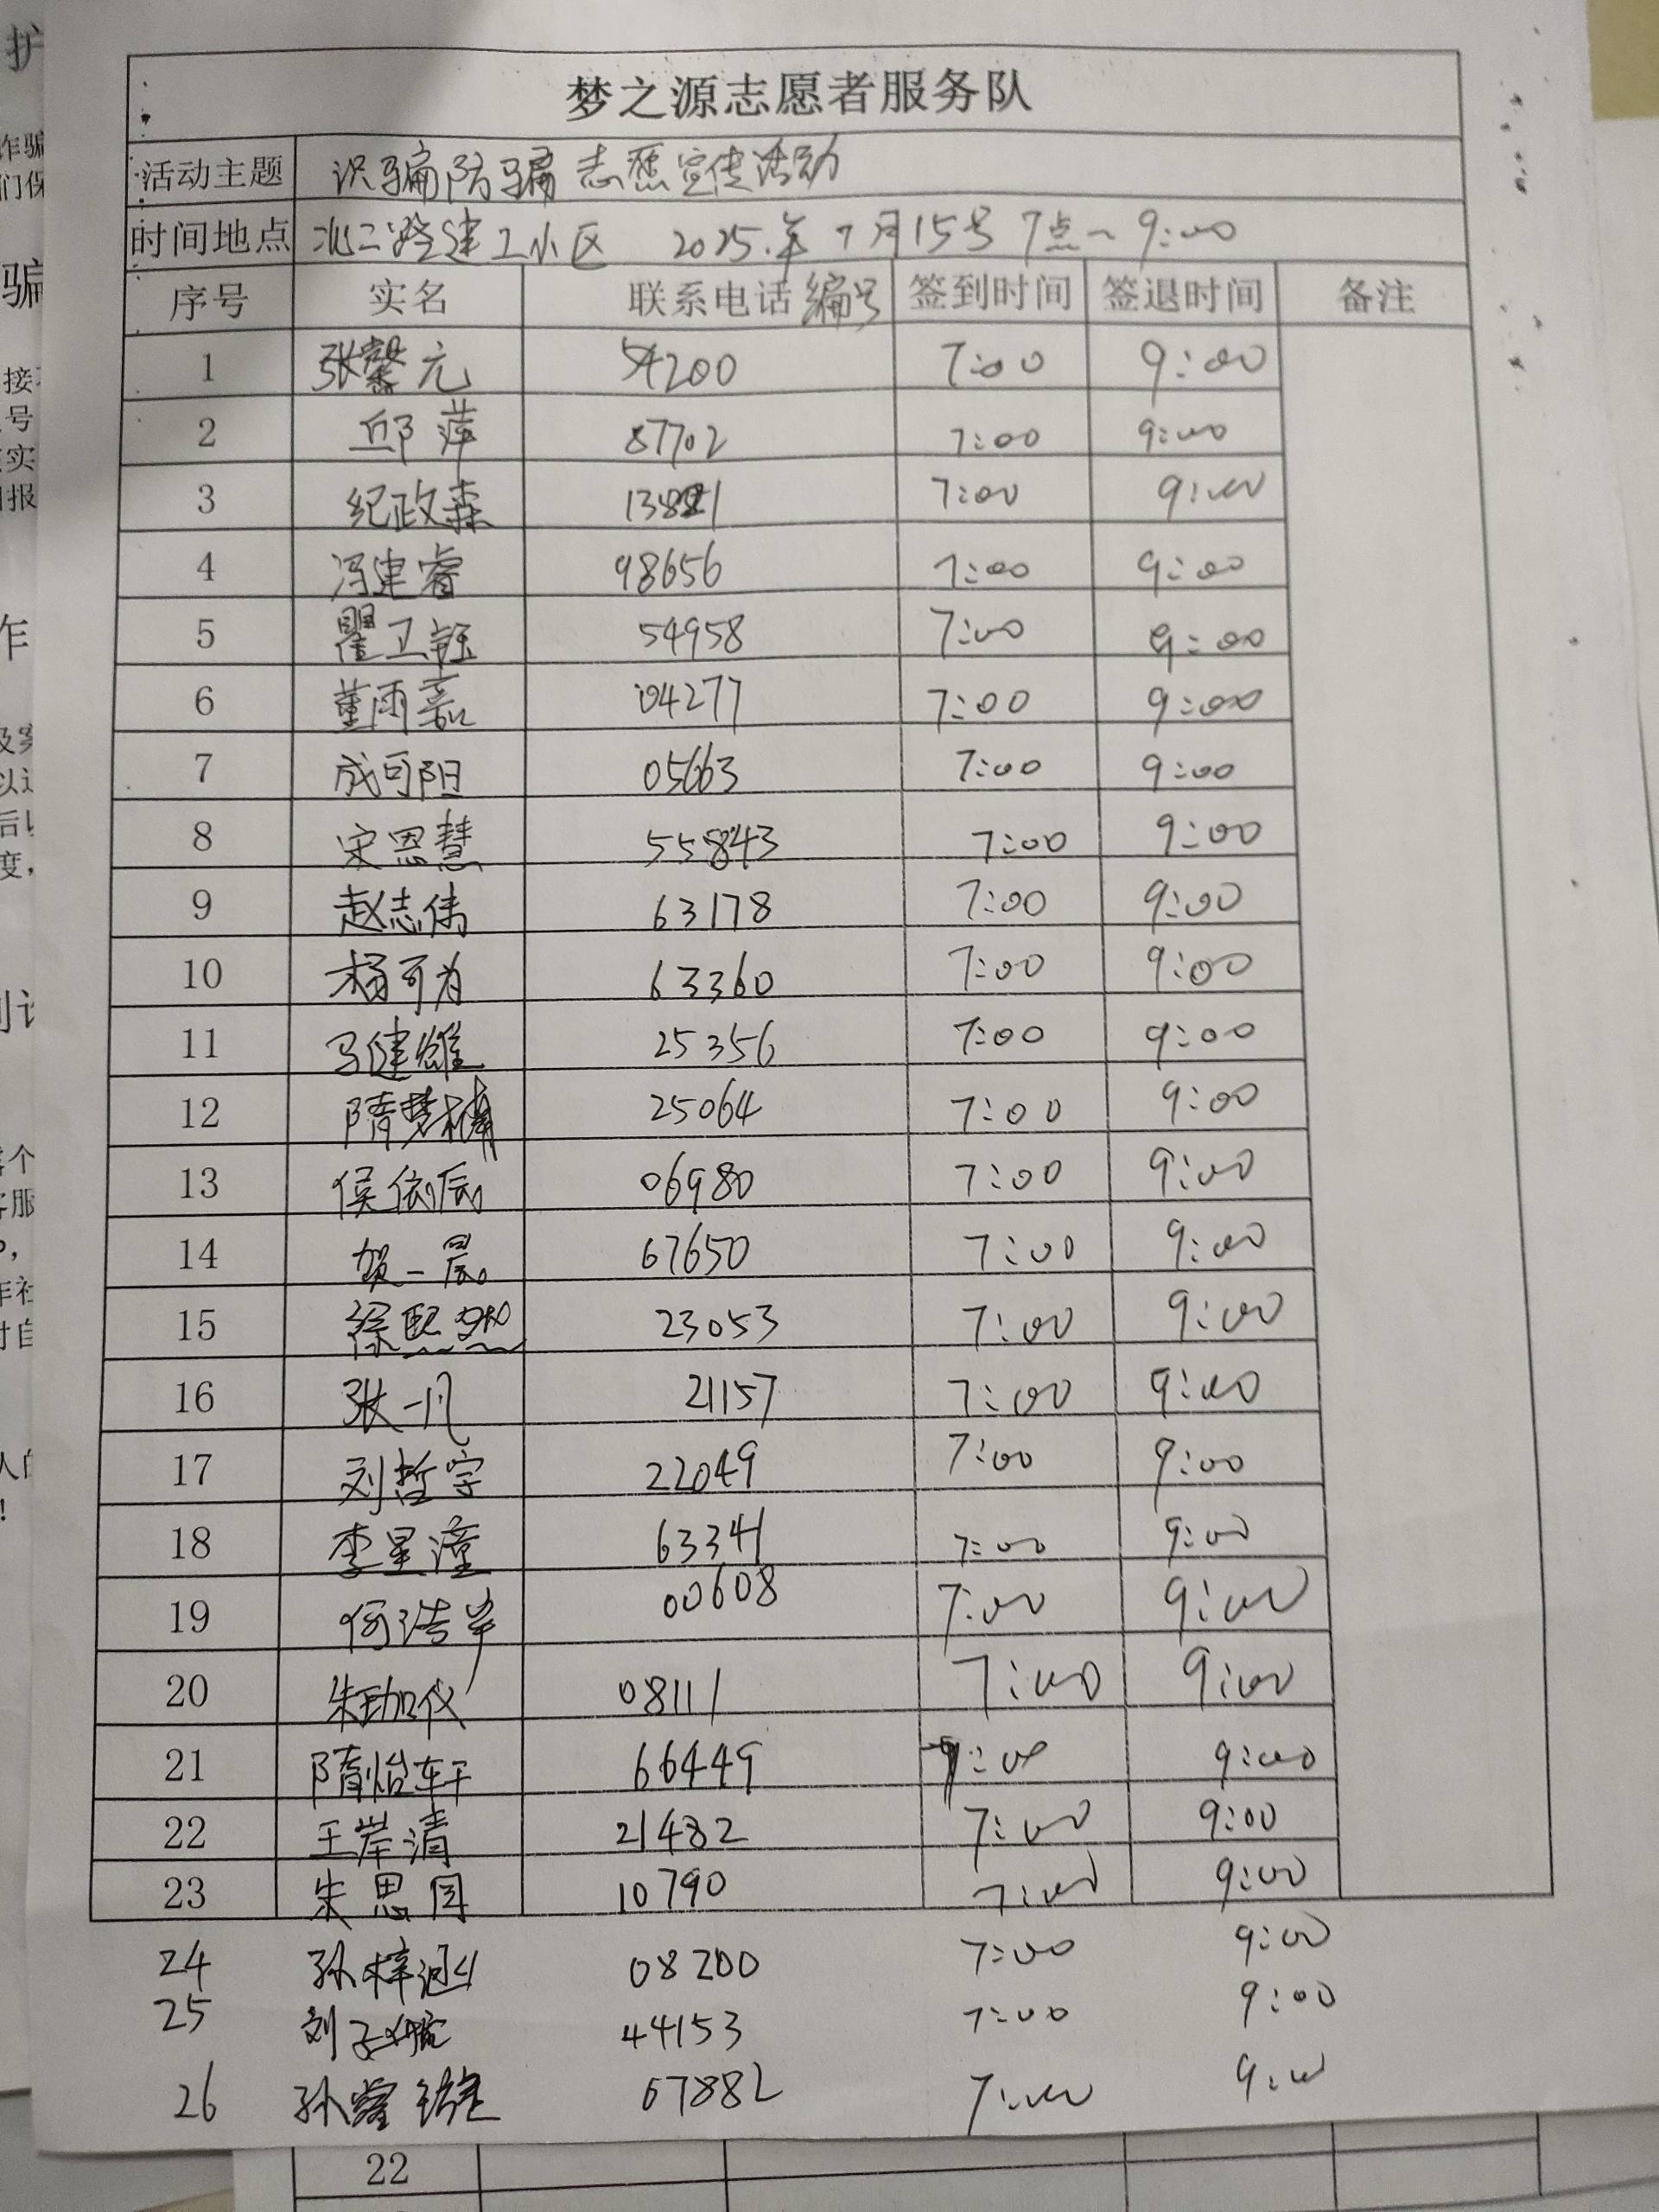 梦之源志愿者服务队
活动主题 识骗防骗志愿宣传活动
时间地点 北二路建工小区 2025.年7月15号 7点~9:00
序号 实名 联系电话编号 签到时间 签退时间 备注
1 张馨元 54200 7:00 9:00
2 邱萍 87702 7:00 9:00
3 纪政森 7:00 9:00
4 冯建睿 98656 7:00 9:00
5 瞿卫钰 54958 7:00 9:00
6 董雨嘉 04277 7:00 9:00
7 成可阳 05663 7:00 9:00
8 宋恩慧 55843 7:00 9:00
9 赵志伟 63178 7:00 9:00
10 杨可为 63360 7:00 9:00
11 马健雄 25356 7:00 9:00
12 隋梦楠 25064 7:00 9:00
13 侯依辰 06980 7:00 9:00
14 贺一晨 67650 7:00 9:00
15 徐熙然 23053 7:00 9:00
16 张一凡 21157 7:00 9:00
17 刘哲宇 22049 7:00 9:00
18 李星潼 63341 7:00 9:00
19 何浩岩 00608 7:00 9:00
20 朱珈仪 08111 7:00 9:00
21 隋怡轩 66449 7:00 9:00
22 王岸清 21482 7:00 9:00
23 朱思同 10790 7:00 9:00
24 孙梓涵 08200 7:00 9:00
25 刘子毓 44153 7:00 9:00
26 孙 07882 7:00 9:00
22